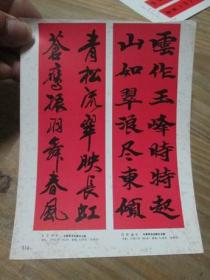 雲作玉峰時特起
山如翠浪尽東傾
青松流翠映長虹
蒼鷹振羽舞春風